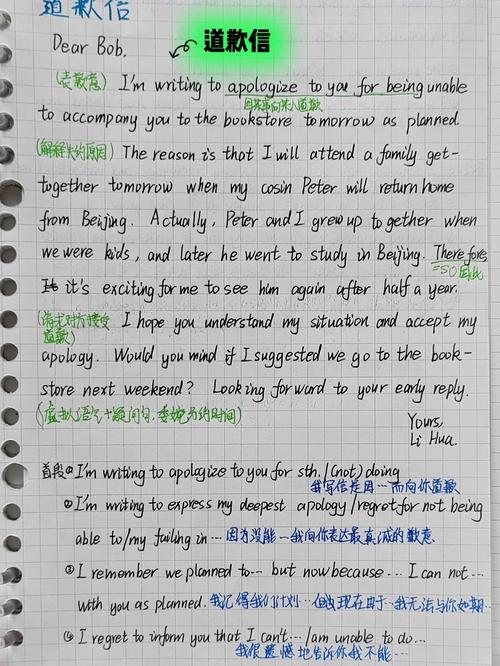 道歉信
道歉信
Dear Bob,
(表歉意) I'm writing to apologize to you for being unable
因某事向某人道歉
to accompany you to the bookstore tomorrow as planned.
(解释失约原因) The reason is that I will attend a family get-
together tomorrow when my cosin Peter will return home
from Beijing. Actually, Peter and I grew up together when
we were kids, and later he went to study in Beijing. Therefore,
=so因此
It it's exciting for me to see him again after half a year.
(请求对方接受道歉) I hope you understand my situation and accept my
apology. Would you mind if I suggested we go to the book-
store next weekend? Looking forward to your early reply.
(虚拟语气+疑问句,委婉另约时间)
Yours,
Li Hua.
首段①I'm writing to apologize to you for sth./(not) doing
我写信是因…而向你道歉
②I'm writing to express my deepest apology/regret for not being
able to/my failing in… 因为没能…我向你表达最真诚的歉意
③I remember we planned to… but now because… I can not…
with you as planned. 我记得我们计划…但由现在由于…我无法与你如期…
④I regret to inform you that I can't…/am unable to do…
我很遗憾地告诉你我不能…